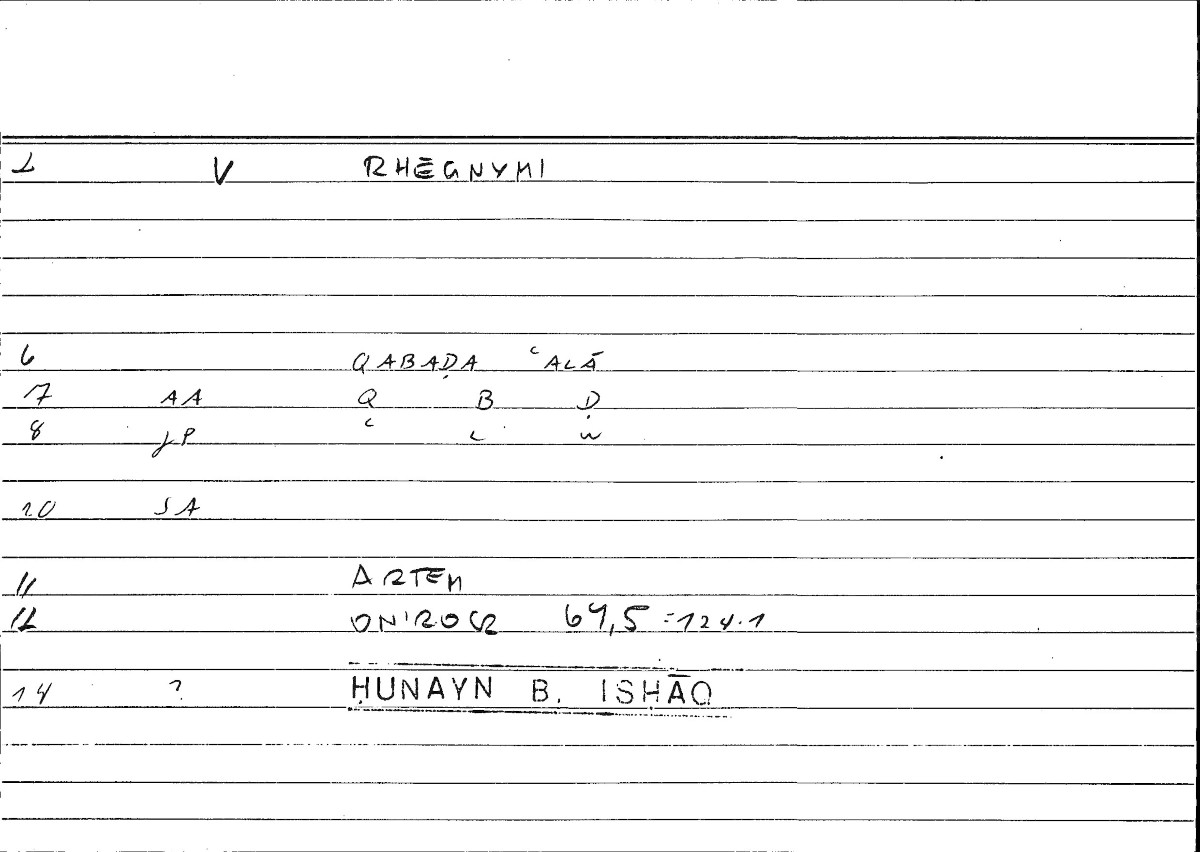 1 V RHĒGNYMI
6 QABAḌA ʿALĀ
7 AA Q B Ḍ
8 JP ʿ L W
10 SA
11 ARTEM
12 ONIROCR 67,5 = 124.1
14 ? ḤUNAYN B. ISḤĀQ